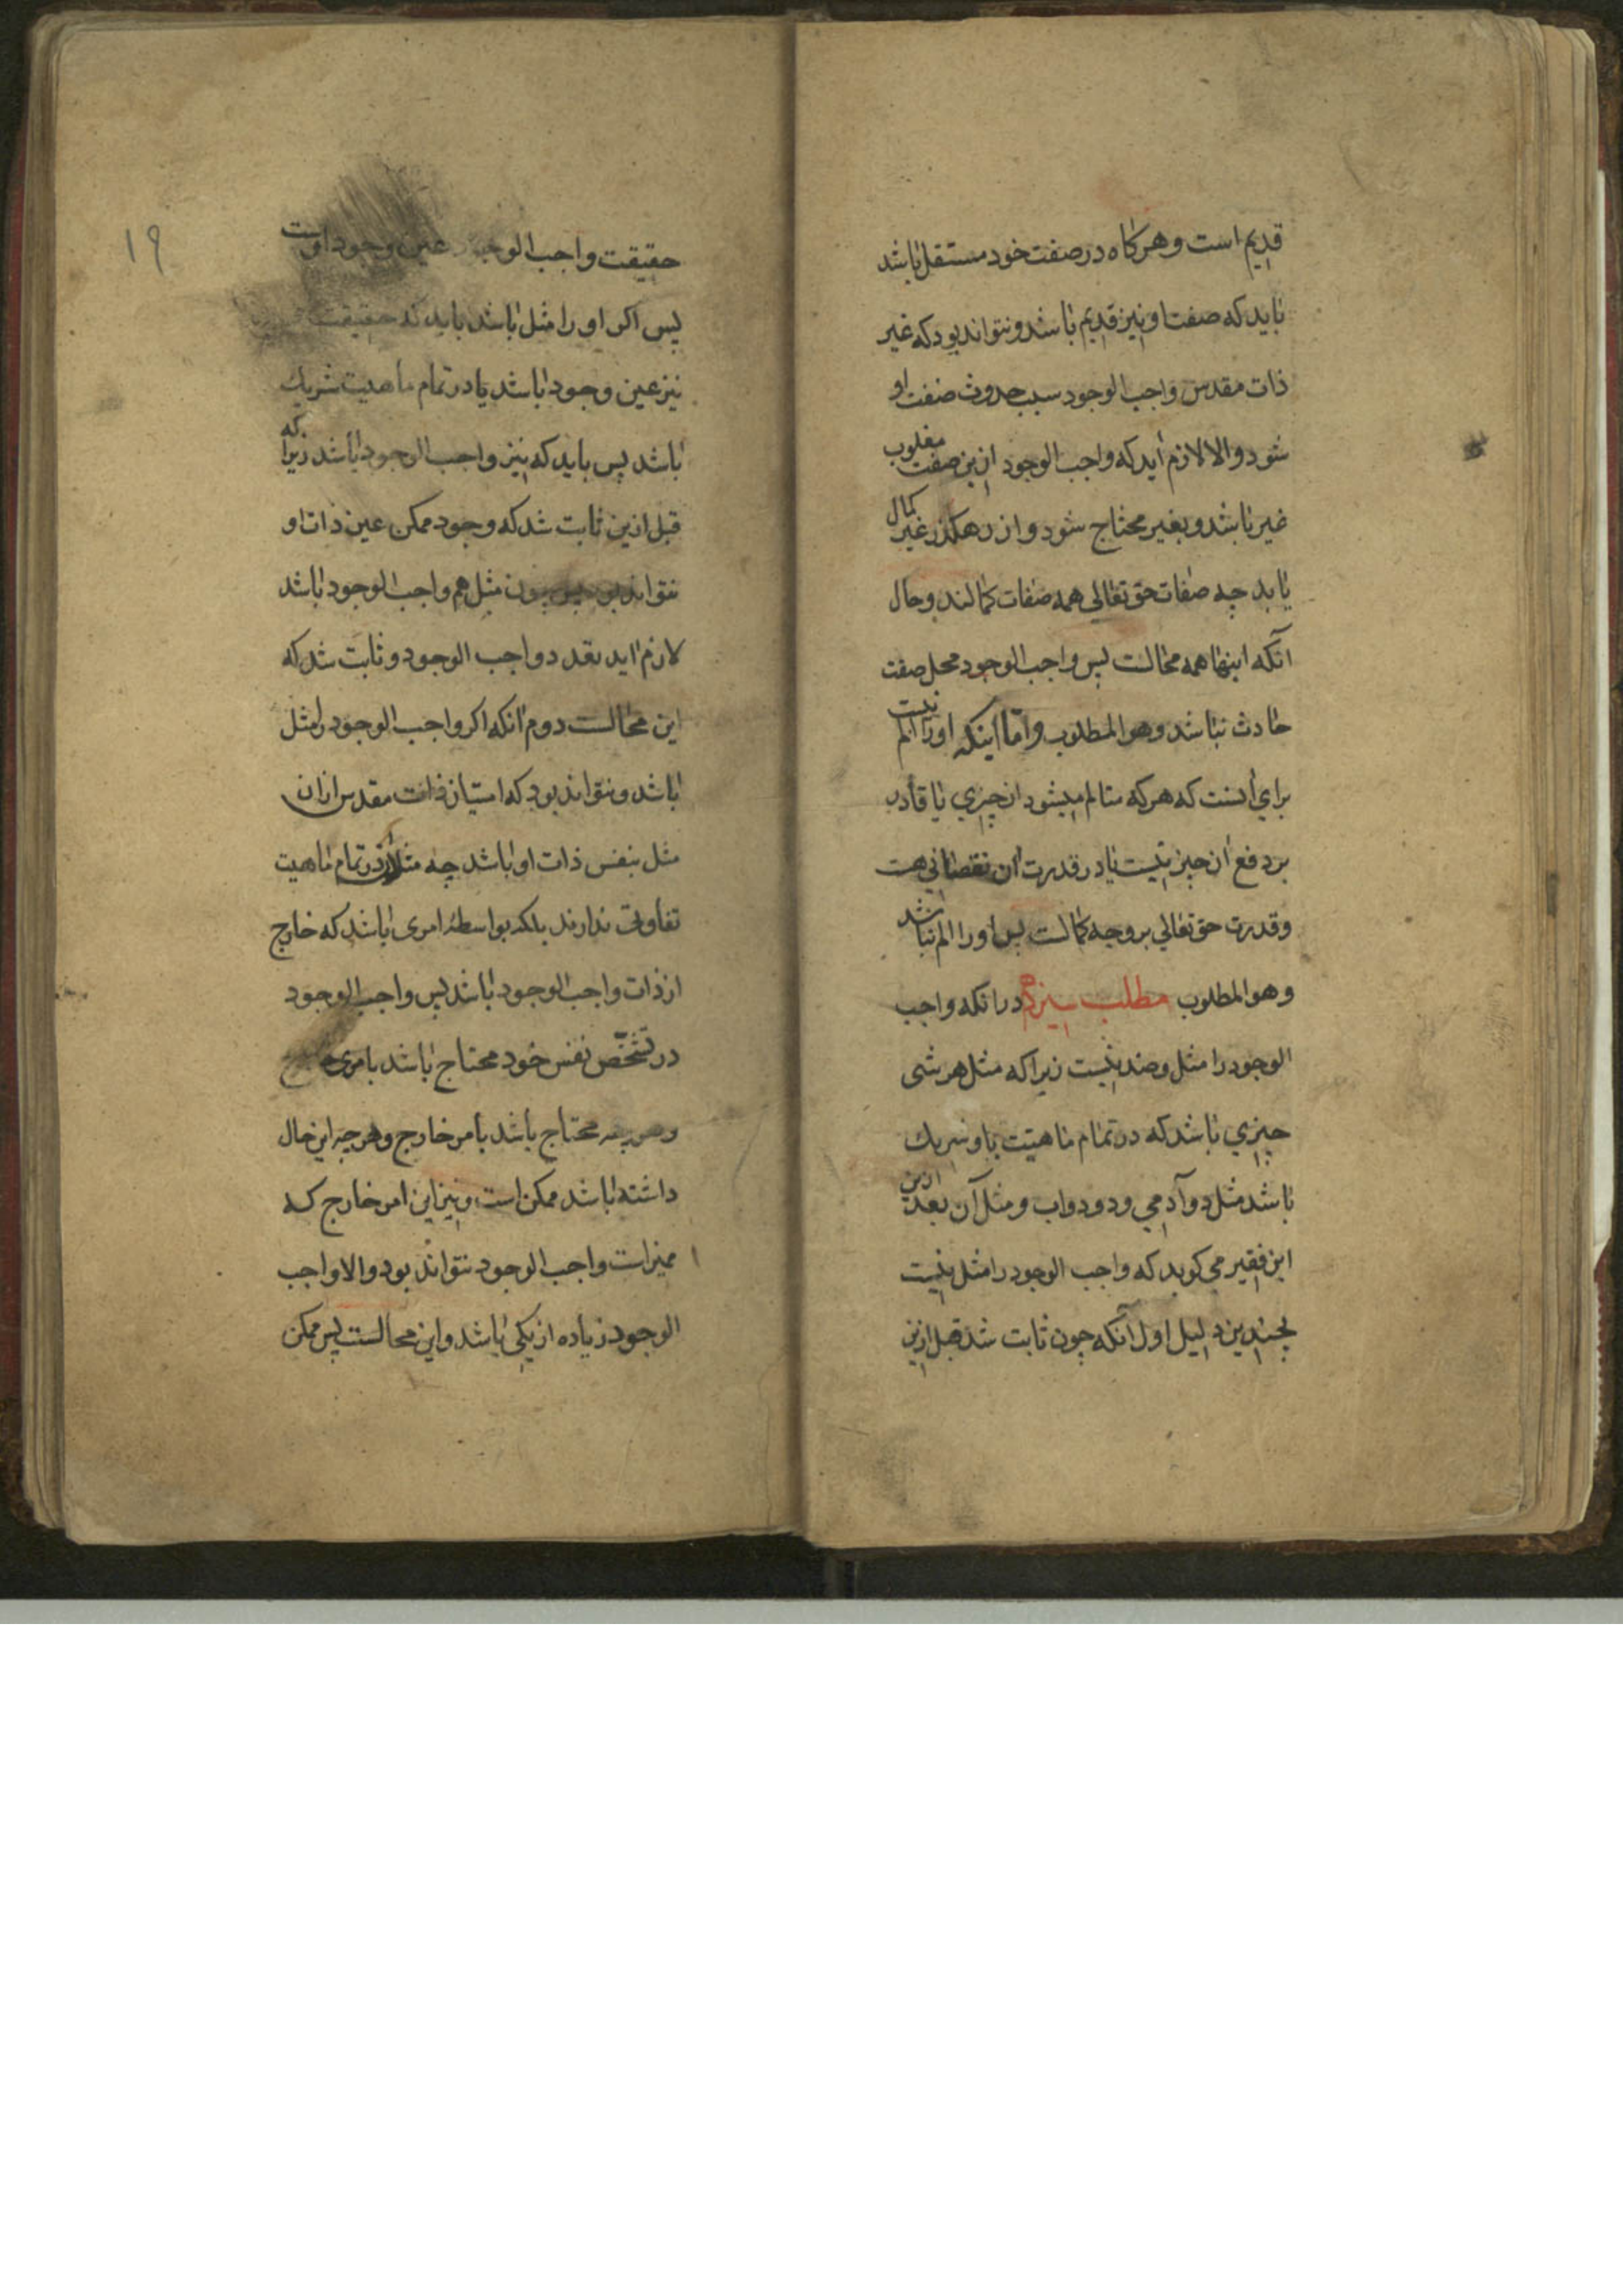 قدیم است و هرکاه در صفت خود مستقل باشد
باید که صفت او نیز قدیم باشد و نتواند بود که غیر
ذات مقدس واجب الوجود سبب حدوث صفت او
شود والا لازم آید که واجب الوجود ازین صفت مغلوب
غیر باشد و بغیر محتاج شود و از رهکذر غیر کمال
یابد چه صفات حق تعالی همه صفات کمالند و حال
آنکه اینها همه محالست پس واجب الوجود محل صفت
حادث نباشد وهو المطلوب و امّا اینکه او را الم نیست
برای آنست که هرکه متالم میشود از چیزی یا قادر
بر دفع آن چیز نیست یا در قدرت آن نقصانی هست
و قدرت حق تعالی بر وجه کمالست پس او را الم نباشد
وهو المطلوب مطلب سیزدهم در آنکه واجب
الوجود را مثل و ضد نیست زیرا که مثل هر شی
چیزی باشد که در تمام ماهیّت باو شریک
باشد مثل دو آدمی و دو دواب و مثل آن بعد ازین
این فقیر می کوید که واجب الوجود را مثل نیست
بچندین دلیل اول آنکه چون ثابت شد قبل ازین
۱۹
حقیقت واجب الوجود عین وجود اوست
پس اکر او را مثل باشد باید که حقیقت
نیز عین وجود باشد یا در تمام ماهیت شریک
باشد پس باید که نیز واجب الوجود باشد زیرا که
قبل ازین ثابت شد که وجود ممکن عین ذات او
نتواند بود پس چون مثل هم واجب الوجود باشد
لازم اید تعدد واجب الوجود و ثابت شد که
این محالست دوم آنکه اکر واجب الوجود را مثل
باشد و نتواند بود که امتیاز ذات مقدس از ان
مثل بنفس ذات او باشد چه مثلان در تمام ماهیت
تفاوتی ندارند بلکه بواسطه امری باشد که خارج
از ذات واجب الوجود باشد پس واجب الوجود
در تشخّص نفس خود محتاج باشد بامری خارج
و هر چه محتاج باشد بامر خارج و هر چه این حال
داشته باشد ممکن است و نیز این امر خارج که
ممیز است واجب الوجود نتواند بود والا واجب
الوجود زیاده از یکی باشد و این محالست پس ممکن